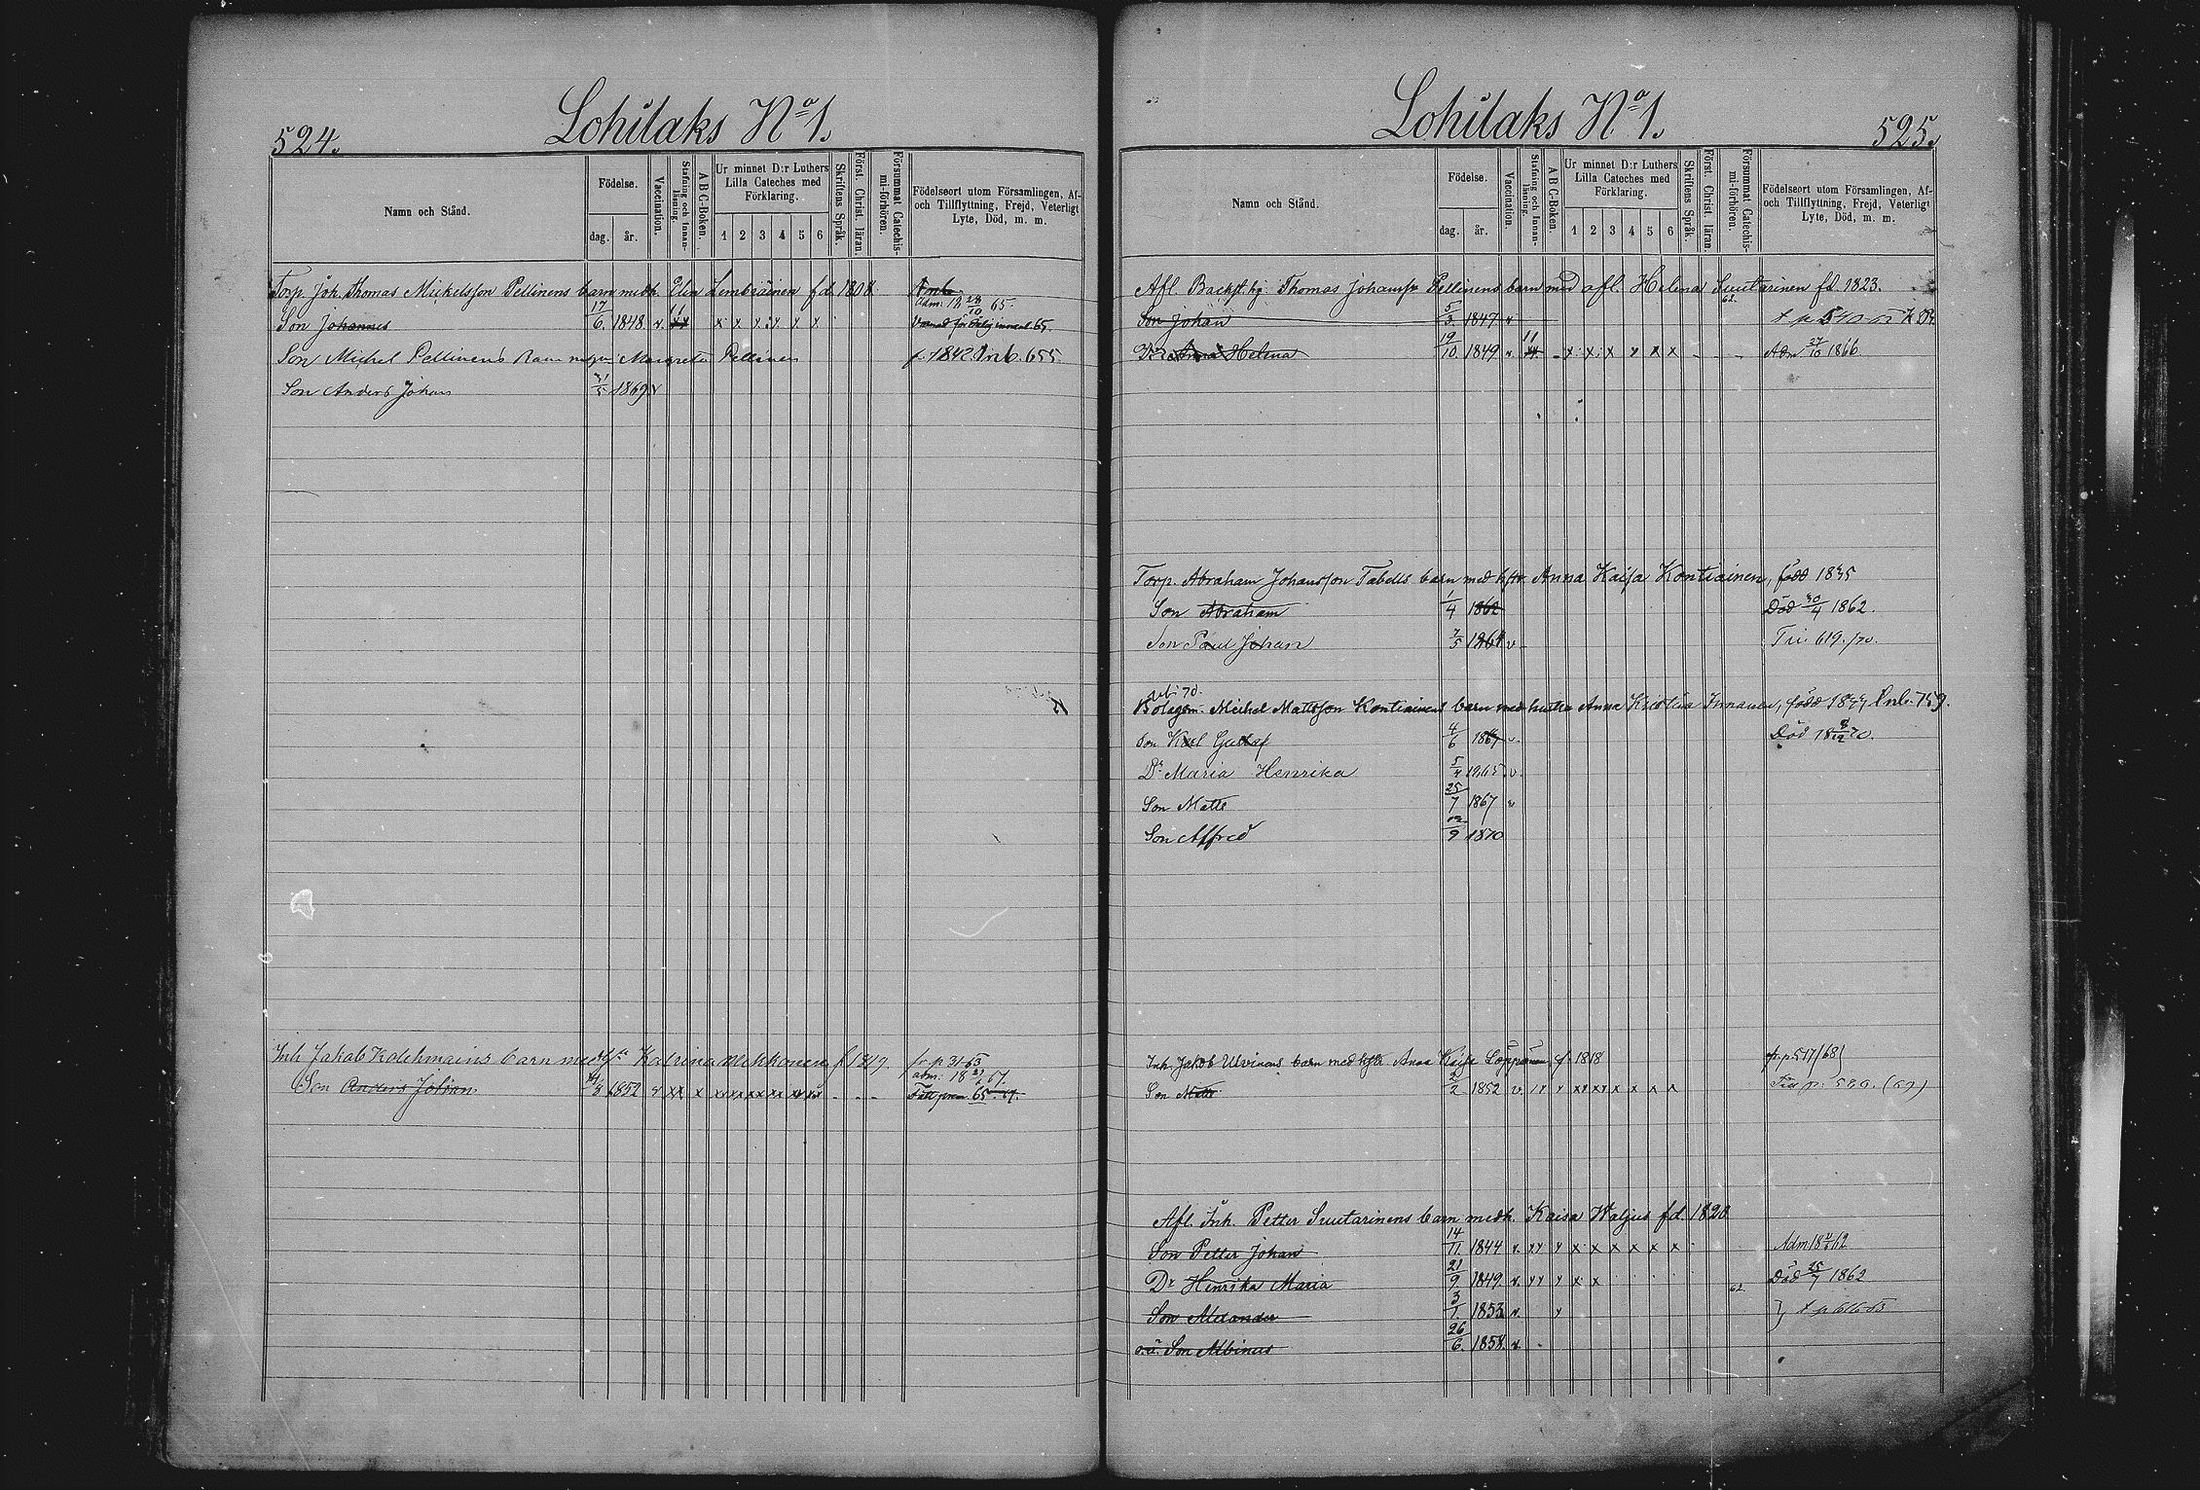 524.
Lohilaks No 1.
Namn och Stånd.
Födelse.
dag.
år.
Vaccination.
Stafning och Innanläsning.
A B C-Boken.
Ur minnet D:r Luthers Lilla Cateches med Förklaring.
1 2 3 4 5 6
Skriftens Språk.
Först. Christ. läran.
Försummat Catechismi-förhören.
Födelseort utom Församlingen, Af- och Tillflyttning, Frejd, Veterligt Lyte, Död, m. m.
Torp. Joh. Thomas Mickelsson Pellinens barn medh. Elin Lembiäinen f.d. 1808
Son Johannes 17/6. 1848. v. x x x x x x Adm: 18 28/10 65.
Son Michel Pellinens barn Margreta Pellinen f. 1842. Inb. 655.
Son Anders Johan 1869 v
Inh. Jakob Kolehmains barn med Katrina Mikkonen f. 1819. fr p 31-65
Son Anders Johan 1852 v xx x adm: 18 67.
525.
Lohilaks No 1.
Namn och Stånd.
Födelse.
dag.
år.
Vaccination.
Stafning och Innanläsning.
A B C-Boken.
Ur minnet D:r Luthers Lilla Cateches med Förklaring.
1 2 3 4 5 6
Skriftens Språk.
Först. Christ. läran.
Försummat Catechismi-förhören.
Födelseort utom Församlingen, Af- och Tillflyttning, Frejd, Veterligt Lyte, Död, m. m.
Afl. Backst.hj. Thomas Johanss. Pellinens barn med afl. Helena Suutarinen fd. 1823.
Son Johan 5/3. 1847 v
Helena 19/10. 1849 v. x x x x x x Adm 27/10 1866
Torp. Abraham Johansson Tabells barn med hstr. Anna Kaisa Kontiainen, född 1835
Son Abraham 1/4 1862 Död 30/4 1862.
Son Paul Johan 7/5 1864 v Till 619./70.
Bolagsm. Michel Mattsson Kontiainens barn med hustru Anna Kristina Immanen, född Inb. 759.
Son Karl Gustaf 4/6 1864 v. Död 18 70.
Dr Maria Henrika 1865. v.
Son Matts 25/7 1867 v
Son Alfred 12/9 1870
Inh. Jakob Ulvinens barn med hstr. Anna Kaisa Loppönen f. 1818 fr. p 517/68)
Son Matts 2/2 1852 v
Afl. Inh. Petter Suutarinens barn medh. Kaisa Waljus f.d. 1820
Son Petter Johan 14/11. 1844 v. x x x x x x Adm 18 62
Dr Henrika Maria 21/9. 1849 v. x x Död 25/7 1862
Son Alexander 3/1. 1853 v.
o.ä. Son Albinus 26/6. 1858. v.